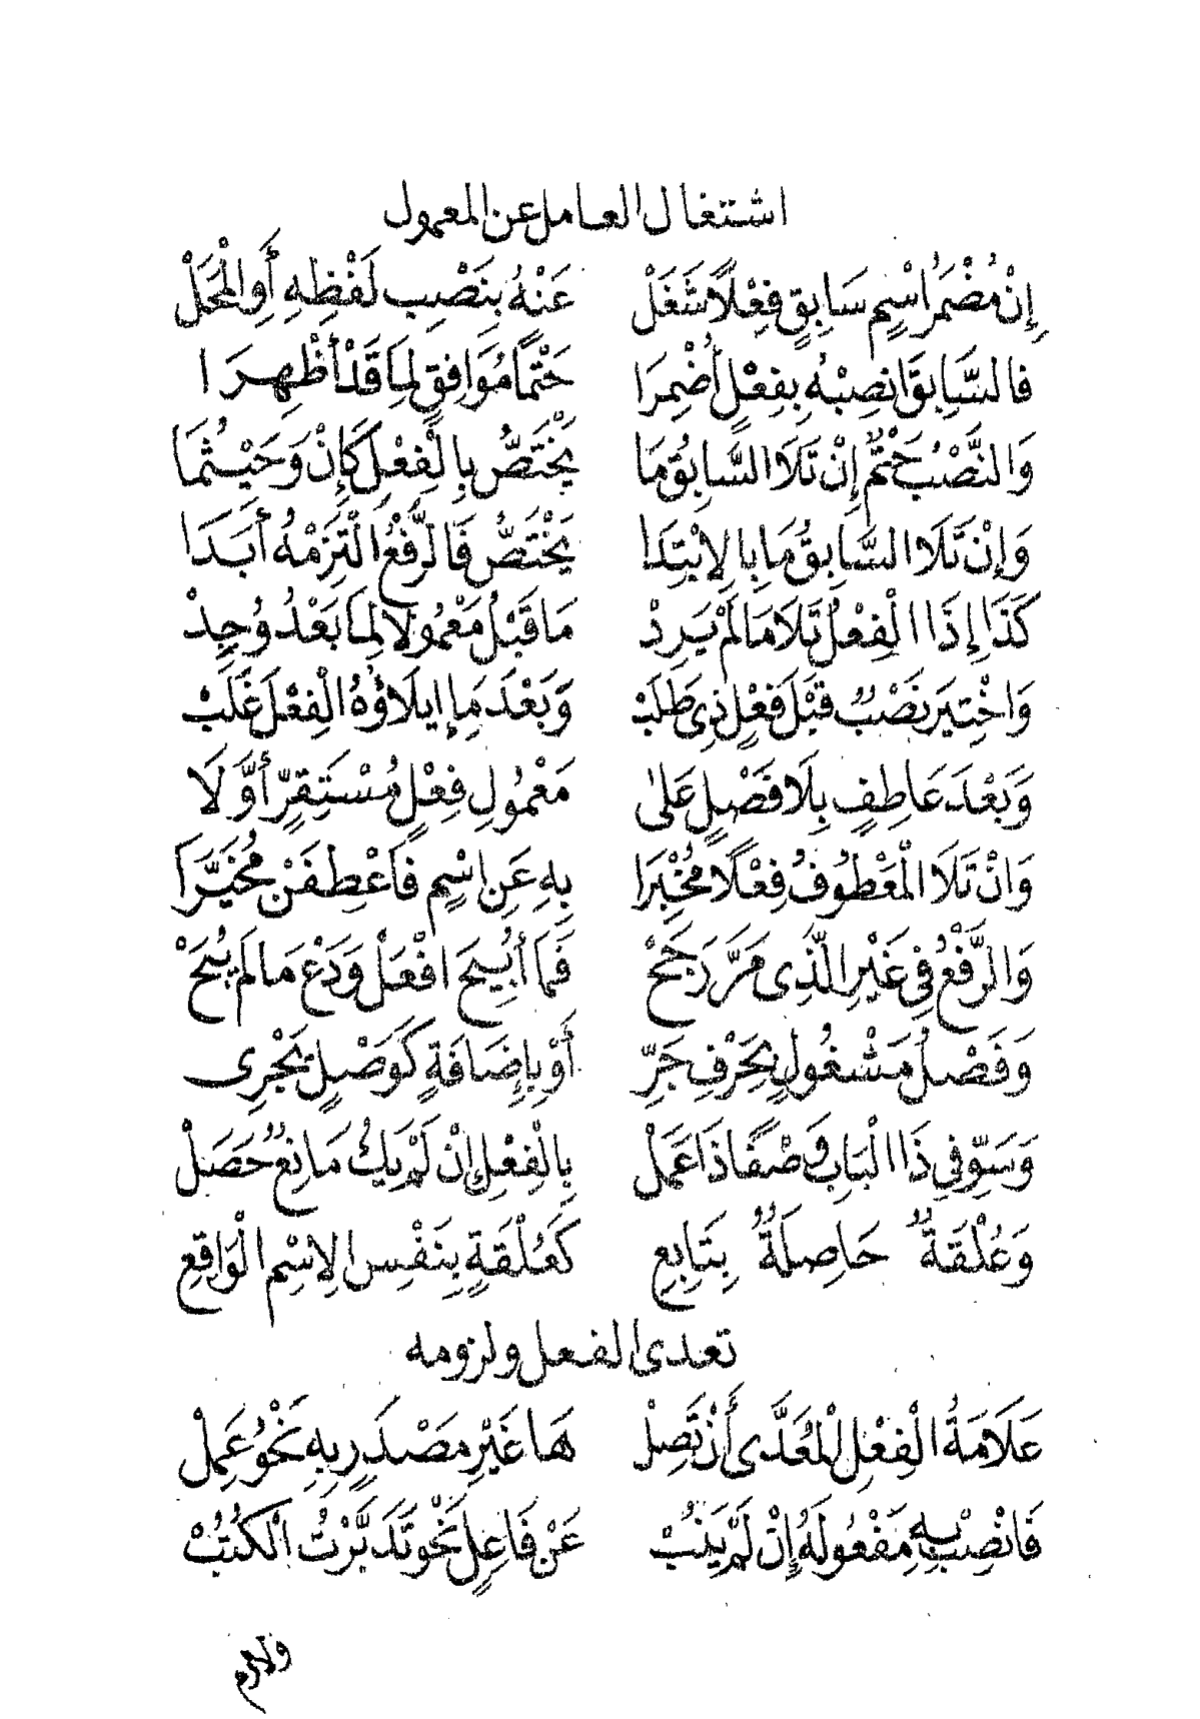 اشتغال العامل عن المعمول
إِنْ مُضْمَرُ اسْمٍ سَابِقٍ فِعْلًا شَغَلْ عَنْهُ بِنَصْبِ لَفْظِهِ أَوِ الْمَحَلّْ
فَالسَّابِقَ انْصِبْهُ بِفِعْلٍ أُضْمِرَا حَتْمًا مُوَافِقٍ لِمَا قَدْ أُظْهِرَا
وَالنَّصْبُ حَتْمٌ إِنْ تَلَا السَّابِقُ مَا يَخْتَصُّ بِالْفِعْلِ كَإِنْ وَحَيْثُمَا
وَإِنْ تَلَا السَّابِقُ مَا بِالِابْتِدَا يَخْتَصُّ فَالرَّفْعُ الْتَزِمْهُ أَبَدَا
كَذَا إِذَا الْفِعْلُ تَلَا مَا لَمْ يَرِدْ مَا قَبْلُ مَعْمُولًا لِمَا بَعْدُ وُجِدْ
وَاخْتِيرَ نَصْبٌ قَبْلَ فِعْلٍ ذِى طَلَبْ وَبَعْدَ مَا إِيلَاؤُهُ الْفِعْلَ غَلَبْ
وَبَعْدَ عَاطِفٍ بِلَا فَصْلٍ عَلَى مَعْمُولِ فِعْلٍ مُسْتَقِرٍّ أَوَّلَا
وَانْ تَلَا الْمَعْطُوفُ فِعْلًا مُخْبَرَا بِهِ عَنِ اسْمٍ فَاعْطِفَنْ مُخَيَّرَا
وَالرَّفْعُ فِي غَيْرِ الَّذِى مَرَّ رَجَحْ فَمَا أُبِيحَ افْعَلْ وَدَعْ مَا لَمْ يُبَحْ
وَفَصْلُ مَشْغُولٍ بِحَرْفِ جَرِّ أَوْ بِإِضَافَةٍ كَوَصْلٍ يَجْرِى
وَسَوِّ فِي ذَا الْبَابِ وَصْفًا ذَا عَمَلْ بِالْفِعْلِ إِنْ لَمْ يَكُ مَانِعٌ حَصَلْ
وَعُلْقَةٌ حَاصِلَةٌ بِتَابِعِ كَعُلْقَةٍ بِنَفْسِ الِاسْمِ الْوَاقِعِ
تعدى الفعل ولزومه
عَلَامَةُ الْفِعْلِ الْمُعَدَّى أَنْ تَصِلْ هَا غَيْرِ مَصْدَرٍ بِهِ نَحْوُ عَمِلْ
فَانْصِبْ بِهِ مَفْعُولَهُ إِنْ لَمْ يَنُبْ عَنْ فَاعِلٍ نَحْوُ تَدَبَّرْتُ الْكُتُبْ
ولازم